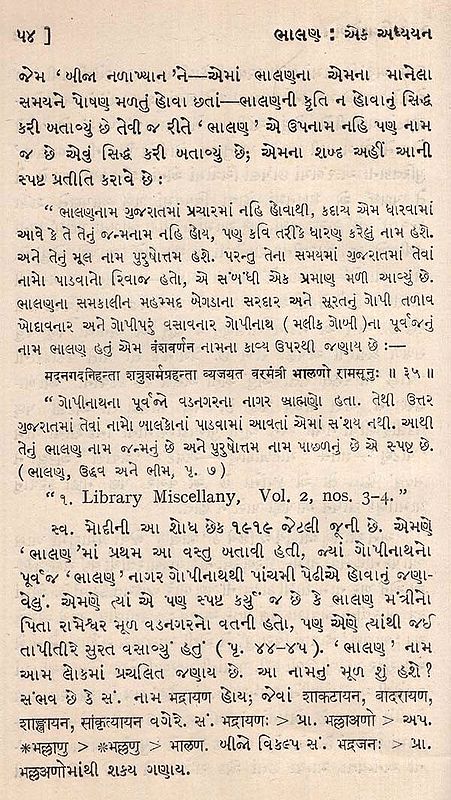 ૫૪ ] ભાલણ : એક અધ્યયન
જેમ ‘બીજા નળાખ્યાન’ને—એમાં ભાલણના એમના માનેલા
સમયને પોષણ મળતું હોવા છતાં—ભાલણની કૃતિ ન હોવાનું સિદ્ધ
કરી બતાવ્યું છે તેવી જ રીતે ‘ભાલણ’ એ ઉપનામ નહિ પણ નામ
જ છે એવું સિદ્ધ કરી બતાવ્યું છે; એમના શબ્દ અહીં આની
સ્પષ્ટ પ્રતીતિ કરાવે છે :
“ ભાલણનામ ગુજરાતમાં પ્રચારમાં નહિ હોવાથી, કદાચ એમ ધારવામાં
આવે કે તે તેનું જન્મનામ નહિ હોય, પણ કવિ તરીકે ધારણ કરેલું નામ હશે.
અને તેનું મૂલ નામ પુરુષોત્તમ હશે. પરન્તુ તેના સમયમાં ગુજરાતમાં તેવાં
નામો પાડવાનો રિવાજ હતો, એ સંબંધી એક પ્રમાણ મળી આવ્યું છે.
ભાલણના સમકાલીન મહમ્મદ બેગડાના સરદાર અને સુરતનું ગોપી તળાવ
ખોદાવનાર અને ગોપીપરૂં વસાવનાર ગોપીનાથ ( મલીક ગોબી )ના પૂર્વજનું
નામ ભાલણ હતું એમ वंशवर्णन નામના કાવ્ય ઉપરથી જણાય છે :—
मदनगदनिहन्ता शत्रुशर्मप्रहन्ता व्यजयत वरमंत्री भालणो रामसूनुः ॥ ३५ ॥
“ ગોપીનાથના પૂર્વજો વડનગરના નાગર બ્રાહ્મણો હતા. તેથી ઉત્તર
ગુજરાતમાં તેવાં નામો બાલકોનાં પાડવામાં આવતાં એમાં સંશય નથી. આથી
તેનું ભાલણ નામ જન્મનું છે અને પુરુષોત્તમ નામ પાછળનું છે એ સ્પષ્ટ છે.
( ભાલણ, ઉદ્ધવ અને ભીમ, પૃ. ૭ )
“ ૧. Library Miscellany, Vol. 2, nos. 3–4. ”
સ્વ. મોદીની આ શોધ છેક ૧૯૧૯ જેટલી જૂની છે. એમણે
‘ભાલણ’માં પ્રથમ આ વસ્તુ બતાવી હતી, જ્યાં ગોપીનાથનો
પૂર્વજ ‘ભાલણ’ નાગર ગોપીનાથથી પાંચમી પેઢીએ હોવાનું જણા-
વેલું. એમણે ત્યાં એ પણ સ્પષ્ટ કર્યું જ છે કે ભાલણ મંત્રીનો
પિતા રામેશ્વર મૂળ વડનગરનો વતની હતો, પણ એણે ત્યાંથી જઈ
તાપીતીરે સુરત વસાવ્યું હતું ( પૃ. ૪૪-૪૫ ). ‘ભાલણ’ નામ
આમ લોકમાં પ્રચલિત જણાય છે. આ નામનું મૂળ શું હશે ?
સંભવ છે કે સં. નામ भद्रायण હોય; જેવાં शाकटायन, बादरायण,
शाङ्खायन, सांकृत्यायन વગેરે. સં. भद्रायणः > પ્રા. भल्लाअणो > અપ.
*भल्लाणु > *भल्लणु > भालण. બીજો વિકલ્પ સં. भद्रजनः > પ્રા.
भल्लअणोમાંથી શક્ય ગણાય.